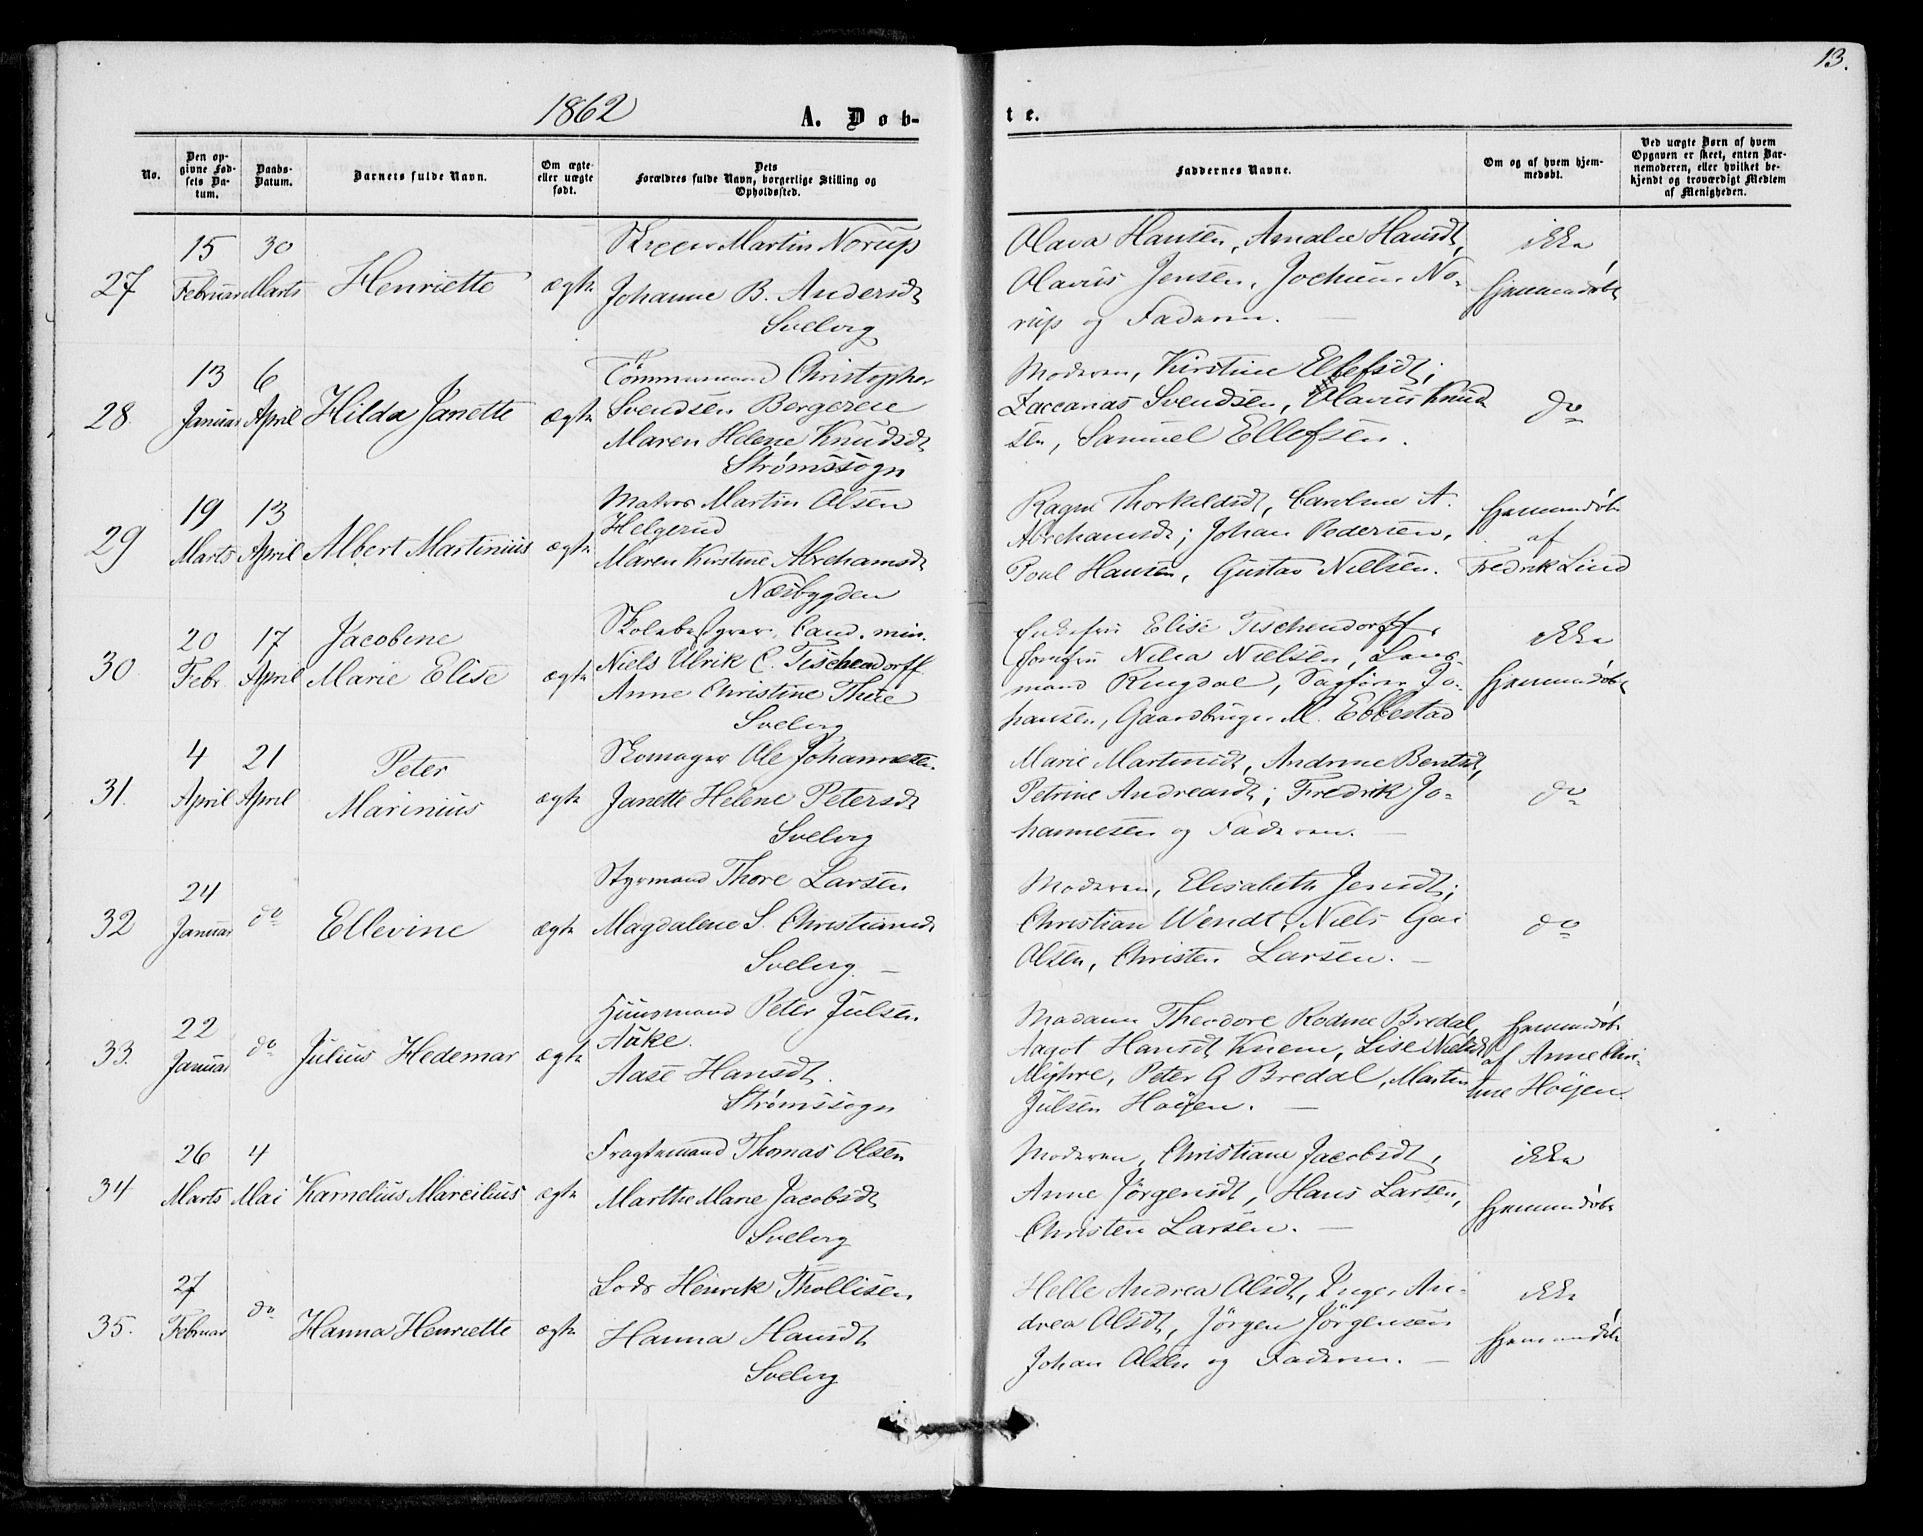 13.
1862
A. Døb-
te.
No.
Den op-
givne Fød-
sels Da-
tum.
Daabs-
Datum.
Barnets fulde Navn.
Om ægte
eller uægte
født.
Dets
Forældres fulde Navn, borgerlige Stilling og
Opholdssted.
Faddernes Navne.
Om og af hvem hjem-
medøbt.
Ved uægte Børn af hvem
Opgaven er skeet, enten Bar-
nemoderen, eller hvilket be-
kjendt og troværdigt Medlem
af Menigheden.
27
15
Februar
30
Marts
Henriette
ægte
Martin Norup
Johanne B. Andersdt
Svelvig
Olava Hansen, Amalie Hansdt,
Olavus Jensen, Jochum No-
rup og Faderen.
ikke
hjemmedøbt
28
13
Januar
6
April
Hilda Janette
ægte
Tömmermand Christopher
Svendsen Bergereie
Maren Helene Knudsdt
Strømssogn
Moderen, Kirstine Ellefsdt;
Zaccarias Svendsen, Olavus Knud
sen, Samuel Ellefsen.
do
29
19
Marts
13
April
Albert Martinius
ægte
Matros Martin Olsen
Helgerud
Maren Kirstine Abrahamsdt
Næsbygden
Ragne Thorkildsdt, Caroline A.
Abrahamsdt; Johan Pedersen,
Poul Hansen, Gustav Nielsen.
hjemmedøbt
af
Fredrik Lind
30
20
Febr.
17
April
Jacobine
Marie Elise
ægte
Skolebestyrer, Cand. min.
Niels Ulrik C. Tischendorff
Anne Christine Thue
Svelvig
Enkefru Elise Tischendorff,
Jomfru Nilia Nielsen, Lens-
mand Ringdal, Sagfører Jo-
hansen, Gaardbruger M. Ebbestad
ikke
hjemmedøbt
31.
4
April
21
April
Peter
Marinius
ægte
Skomager Ole Johannesen
Janette Helene Petersdt
Svelvig
Marie Martinsdt, Andrine Bentsdt,
Petrine Andreasdt; Fredrik Jo-
hannesen og Faderen.
do
32
24
Januar
do
Ellevine
ægte
Styrmand Thore Larsen
Magdalene S. Christiansdt
Svelvig
Moderen, Elisabeth Jensdt;
Christian Wendt, Niels
Olsen, Christen Larsen.
do
33.
22
Januar
do
Julius Hedemar
ægte
Huusmand Peter Julsen
Auke.
Aase Hansdt.
Strømssogn
Madame Theodore Rodine Bredal,
Aagot Hansdt Knem, Lise Nielsdt
Myhre, Peter G Bredal, Martin
Julsen Høijen.
hjemmedøbt
af Anne Chri-
tine Høijen.
34
26
Marts
4
Mai
Karnelius Marcilius
ægte
Fragtemand Thomas Olsen
Marthe Marie Jacobsdt
Svelvig
Moderen, Christiane Jacobsdt,
Anne Jörgensdt, Hans Larsen,
Christen Larsen.
ikke
hjemmedøbt
35.
27
Februar
do
Hanna Henriette
ægte
Lods Henrik Thollisen
Hanna Hansdt
Svelvig
Helle Andrea Olsdt, Inger An-
drea Olsdt, Jörgen Jörgensen
Johan Olsen og Faderen.
ikke
hjemmedøbt